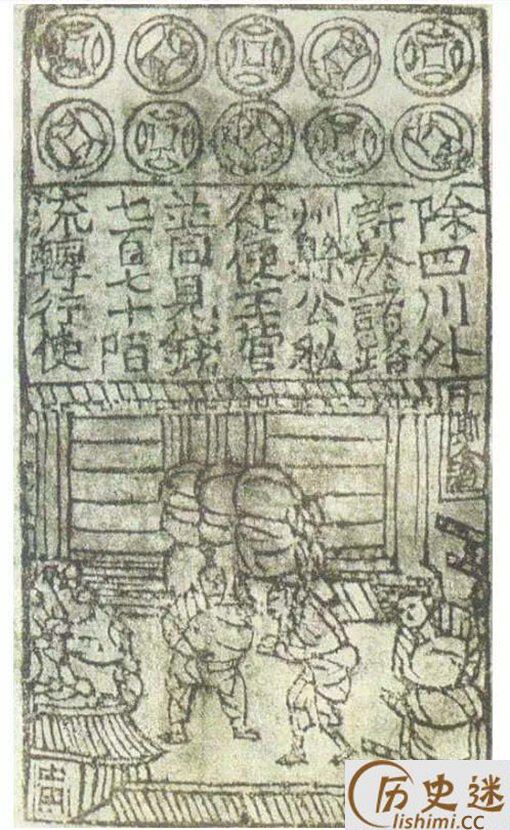 除四川外
許於諸路
州縣公私
從便主管
並同見錢
七百七十陌
流轉行使
历史迷
lishimi.cc